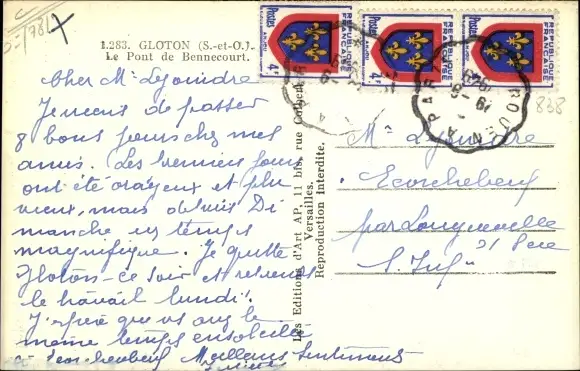 1.283. GLOTON (S.-et-O.).
Le Pont de Bennecourt.
Cher Mr Lejoindre
Je viens de passer
8 bons jours chez mes
amis. Les premiers jours
ont été orageux et plu
vieux, mais depuis Di
manche un temps
magnifique. Je quitte
Gloton ce soir et reprends
le travail lundi.
J'espère que vous avez le
même temps ensoleillé
à Ecorchebeuf Meilleurs Sentiments
Les Editions d'Art AP, 11 bis, rue Colbert
Versailles.
Reproduction interdite.
Postes
ANJOU
4F
REPUBLIQUE
FRANÇAISE
Postes
ANJOU
4F
REPUBLIQUE
FRANÇAISE
REPUBLIQUE
FRANÇAISE
ROUEN A PAR
838
Mr Lejoindre
Ecorchebeuf
par Longueville
S/ Scie
S. Inf